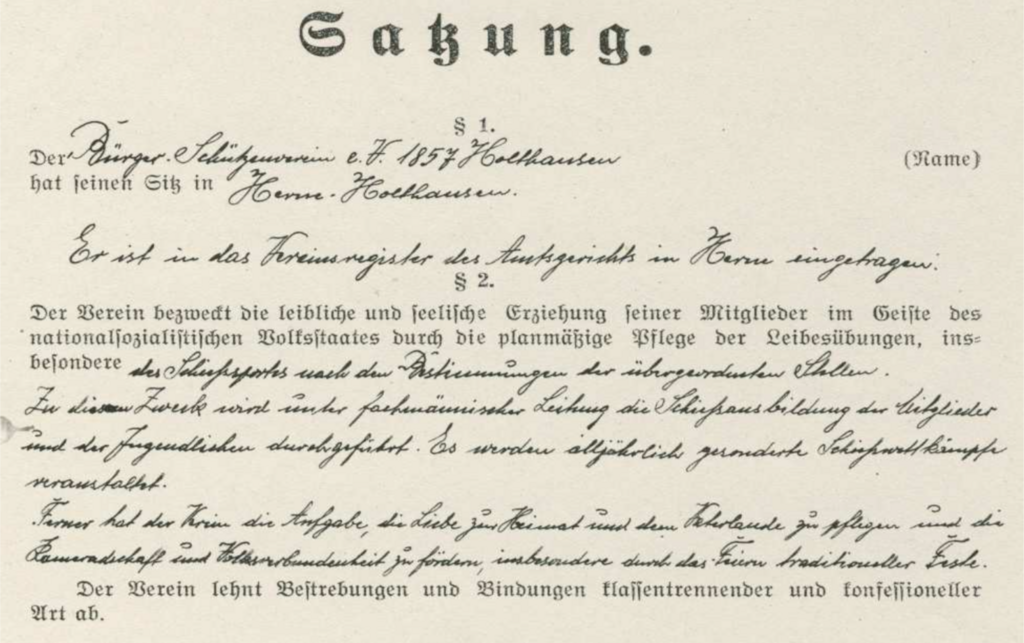 Satzung.
§ 1.
Der Bürger-Schützenverein e.V. 1857 Holthausen (Name)
hat seinen Sitz in Herne-Holthausen.
Er ist in das Vereinsregister des Amtsgerichts in Herne eingetragen.
§ 2.
Der Verein bezweckt die leibliche und seelische Erziehung seiner Mitglieder im Geiste des
nationalsozialistischen Volksstaates durch die planmäßige Pflege der Leibesübungen, ins-
besondere des Schießsportes nach den Bestimmungen der übergeordneten Stellen.
Zu diesem Zweck wird unter fachmännischer Leitung die Schießausbildung der Mitglieder
und der Jugendlichen durchgeführt. Es werden alljährlich gesonderte Schießwettkämpfe
veranstaltet.
Ferner hat der Verein die Aufgabe, die Liebe zur Heimat und dem Vaterlande zu pflegen und die
Kameradschaft und Volksverbundenheit zu fördern, insbesondere durch das Feiern traditioneller Feste.
Der Verein lehnt Bestrebungen und Bindungen klassentrennender und konfessioneller
Art ab.